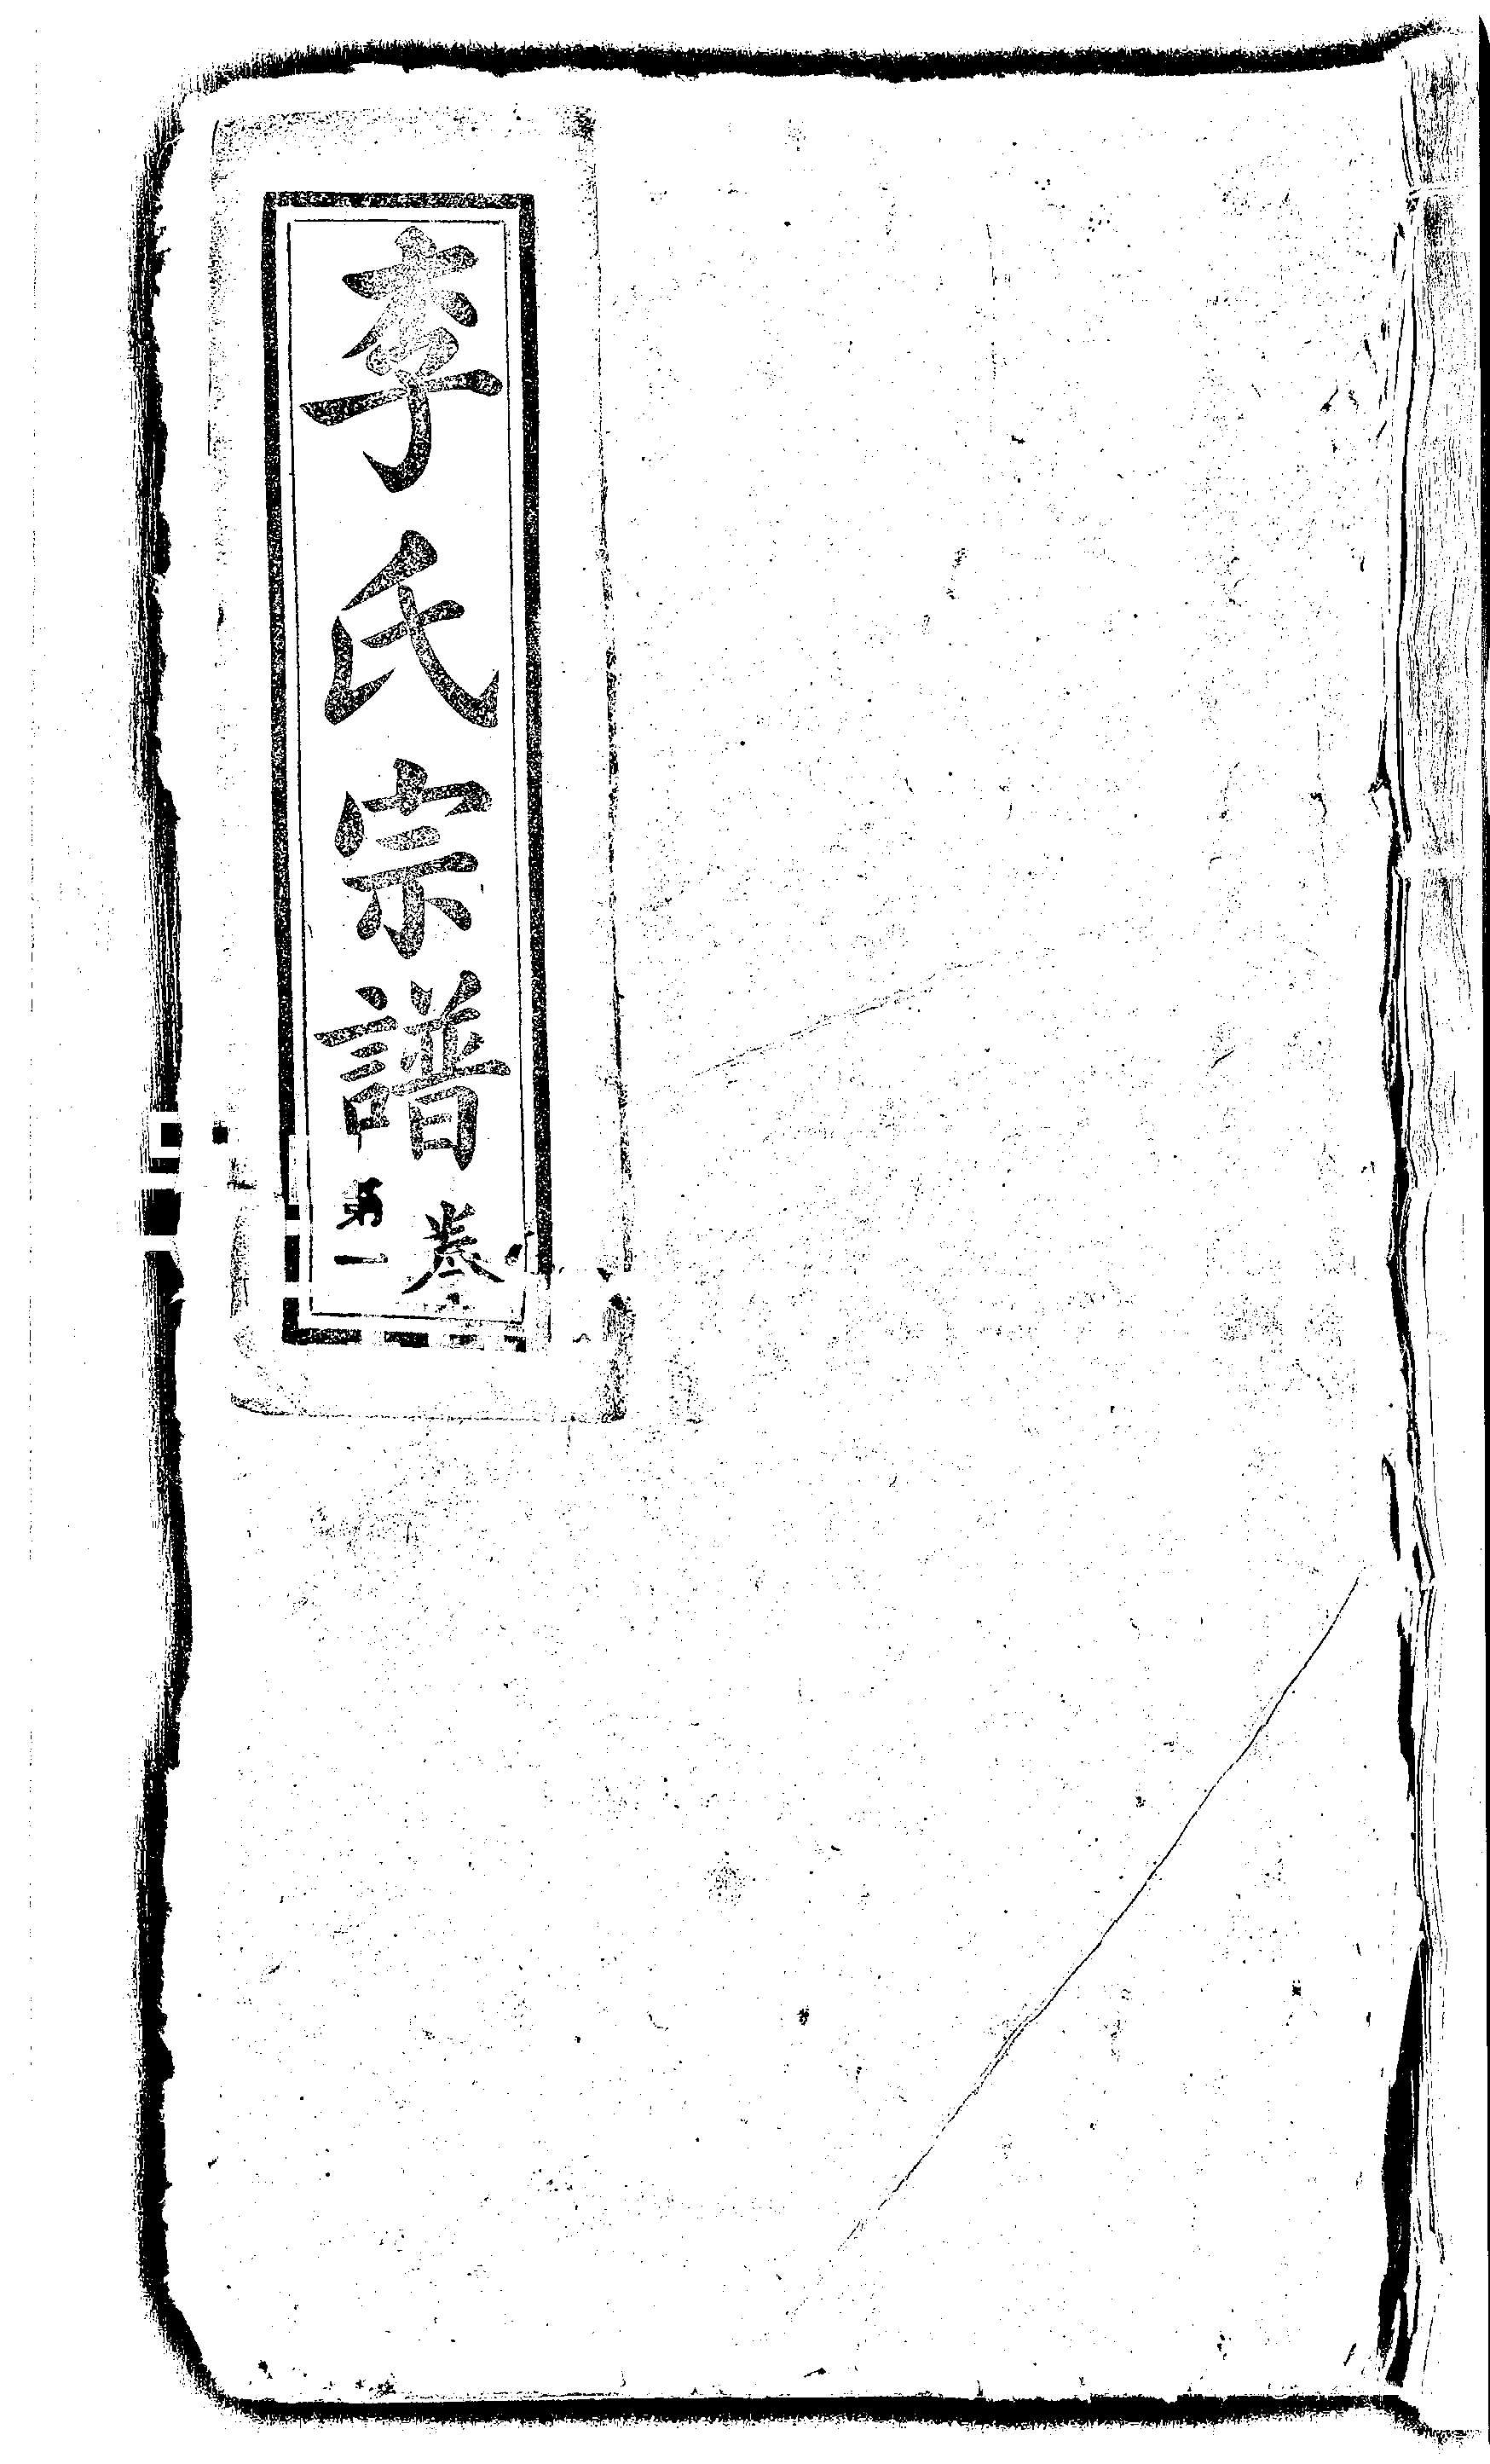 李氏宗譜
卷
第一